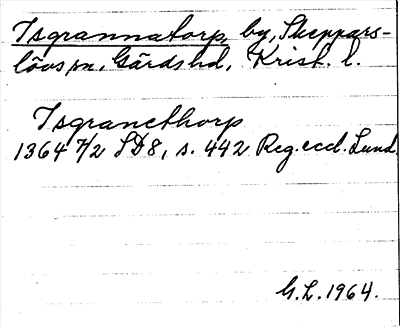 Isgrannatorp, by, Skeppars-
lövs sn, Gärds hd, Krist. l.
Isgranethorp
1364 7/2 SD8, s. 442 Reg. eccl. Lund.
G.L. 1964.